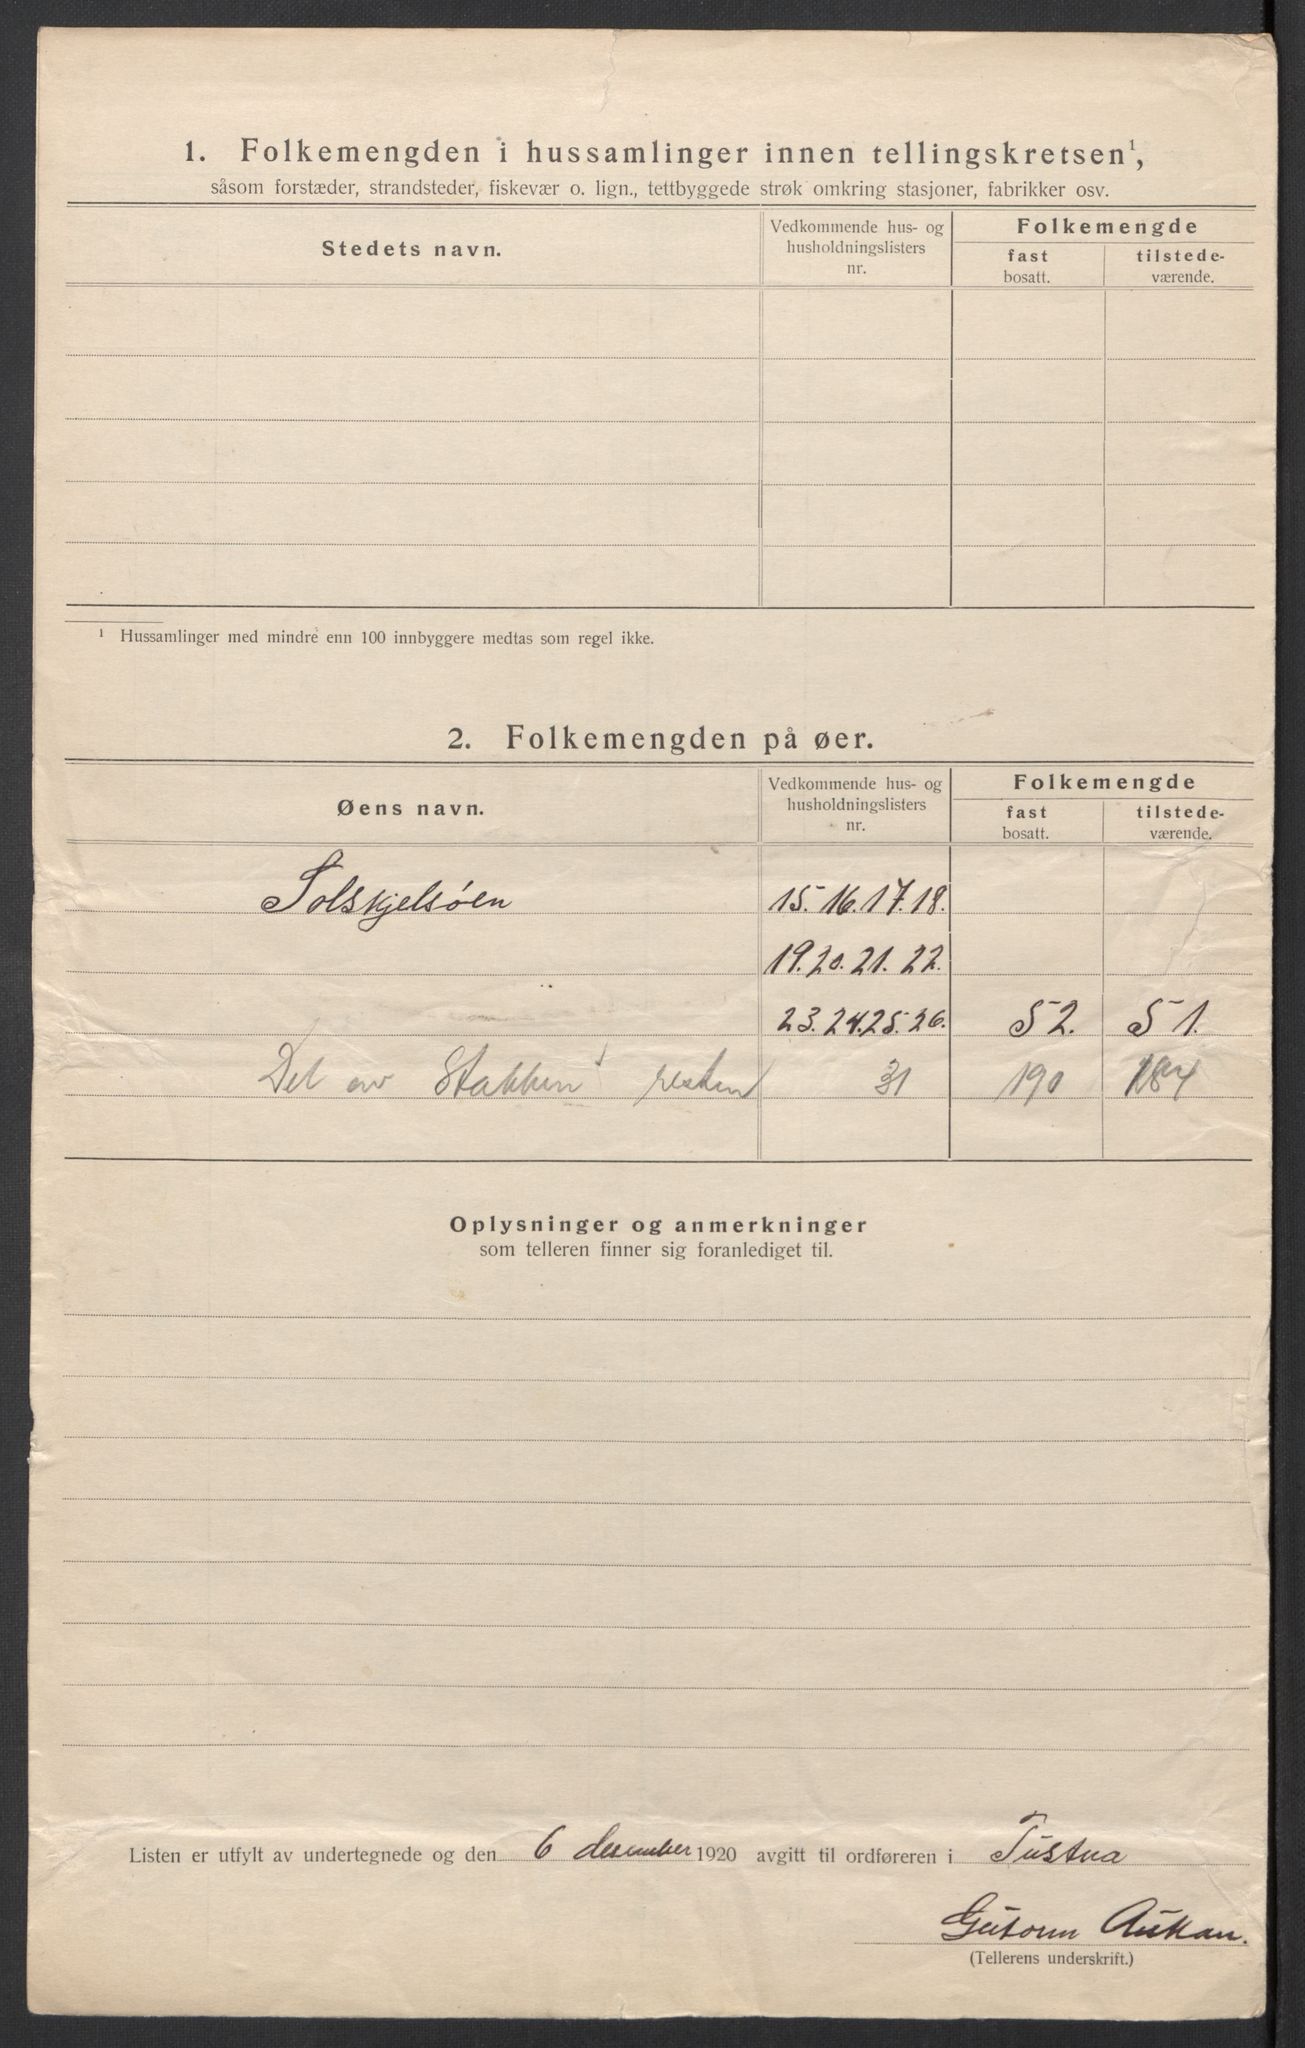 1. Folkemengden i hussamlinger innen tellingskretsen¹,
såsom forstæder, strandsteder, fiskevær o. lign., tettbyggede strøk omkring stasjoner, fabrikker osv.
Stedets navn.
Vedkommende hus- og
husholdningslisters
nr.
Folkemengde
fast
bosatt.
tilstede-
værende.
¹ Hussamlinger med mindre enn 100 innbyggere medtas som regel ikke.
2. Folkemengden på øer.
Øens navn.
Vedkommende hus- og
husholdningslisters
nr.
Folkemengde
fast
bosatt.
tilstede-
værende.
Solskjelsøen 15. 16. 17. 18.
19. 20. 21. 22.
23. 24. 25. 26. 52. 51.
Del av Stabben resten 31 190 184
Oplysninger og anmerkninger
som telleren finner sig foranlediget til.
Listen er utfylt av undertegnede og den 6 desember 1920 avgitt til ordføreren i Tustna
Gutorm Aukan.
(Tellerens underskrift.)